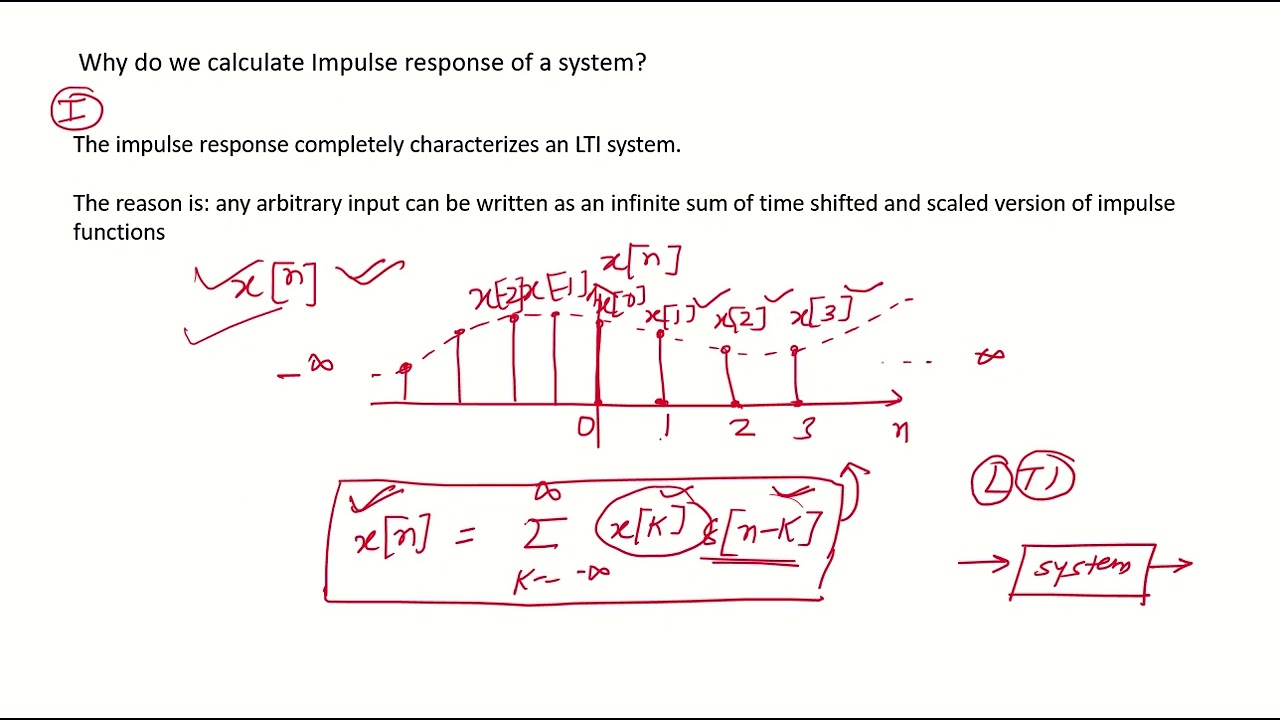 Why do we calculate Impulse response of a system?
I
The impulse response completely characterizes an LTI system.
The reason is: any arbitrary input can be written as an infinite sum of time shifted and scaled version of impulse
functions
x[n]
x[n]
x[-2] x[-1] x[0] x[1] x[2] x[3]
-∞ ∞
0 1 2 3 n
x[n] = ∞ Σ K=-∞ x[K] δ[n-K]
LTI
system